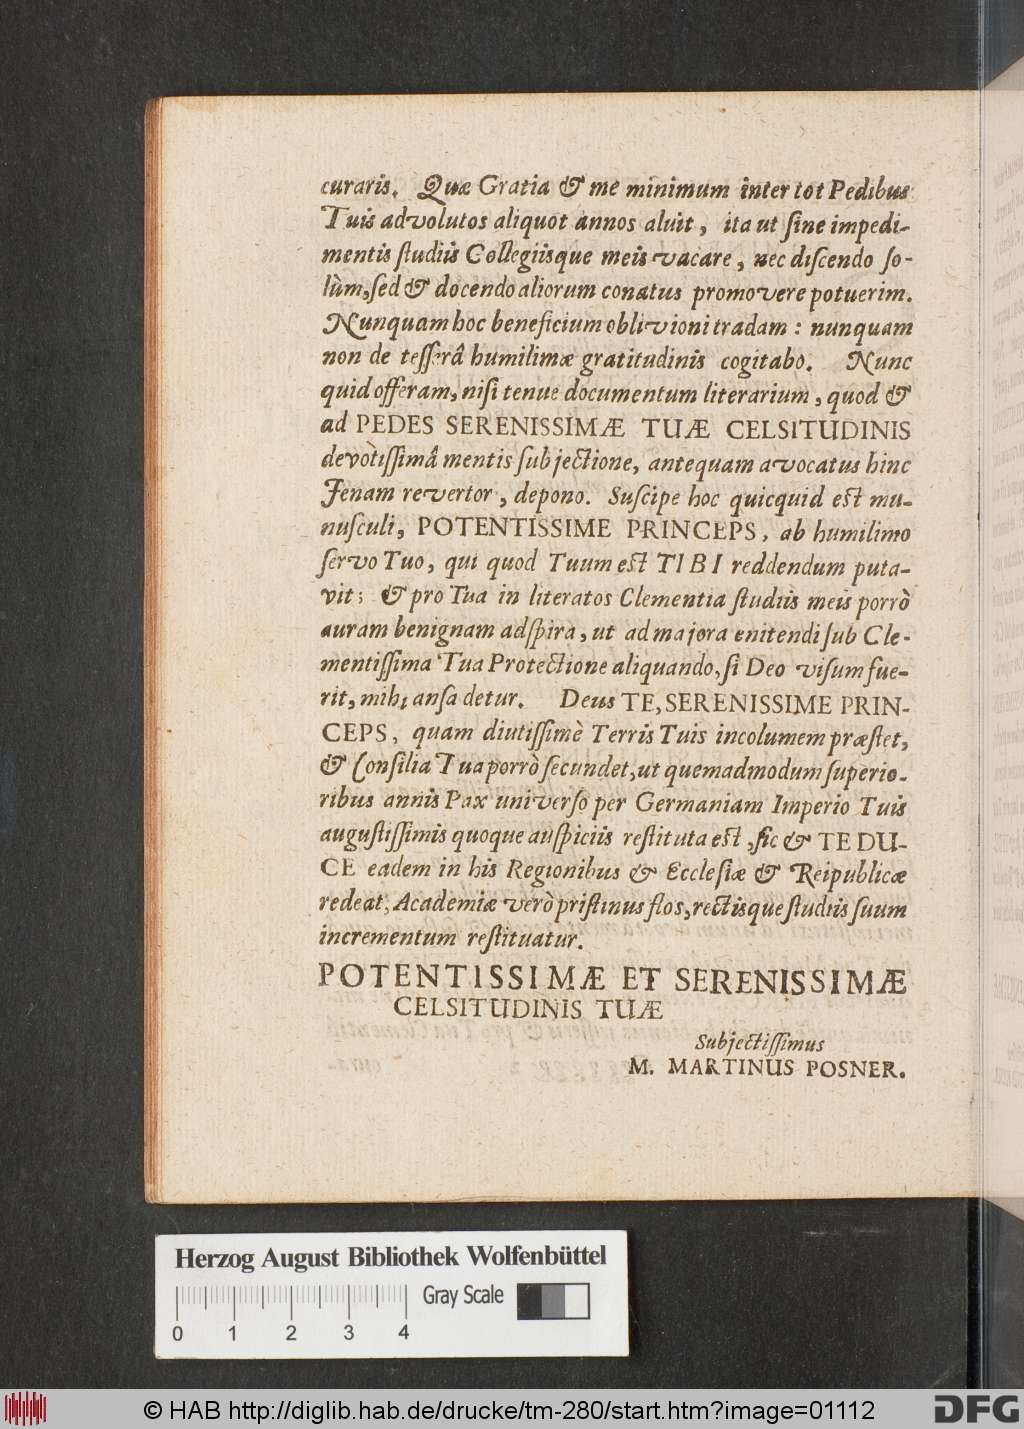 curaris. Quæ Gratia & me minimum inter tot Pedibus
Tuis advolutos aliquot annos aluit, ita ut ſine impedi-
mentis ſtudiis Collegiisque meis vacare, nec diſcendo ſo-
lùm, ſed & docendo aliorum conatus promovere potuerim.
Nunquam hoc beneficium oblivioni tradam: nunquam
non de teſſerâ humilimæ gratitudinis cogitabo. Nunc
quid offeram, niſi tenue documentum literarium, quod &
ad PEDES SERENISSIMÆ TUÆ CELSITUDINIS
devòtiſſimâ mentis ſubjectione, antequam avocatus hinc
Jenam revertor, depono. Suſcipe hoc quicquid eſt mu-
nuſculi, POTENTISSIME PRINCEPS, ab humilimo
ſervo Tuo, qui quod Tuum eſt TIBI reddendum puta-
vit; & pro Tua in literatos Clementia ſtudiis meis porrò
auram benignam adſpira, ut ad majora enitendi ſub Cle-
mentiſſima Tua Protectione aliquando, ſi Deo viſum fue-
rit, mihi anſa detur. Deus TE, SERENISSIME PRIN-
CEPS, quam diutiſſimè Terris Tuis incolumem præſtet,
& Conſilia Tua porrò ſecundet, ut quemadmodum ſuperio-
ribus annis Pax univerſo per Germaniam Imperio Tuis
auguſtiſſimis quoque auſpiciis reſtituta eſt, ſic & TE DU-
CE eadem in his Regionibus & Eccleſiæ & Reipublicæ
redeat, Academiæ verò priſtinus flos, rectisque ſtudiis ſuum
incrementum reſtituatur.
POTENTISSIMÆ ET SERENISSIMÆ
CELSITUDINIS TUÆ
Subjectiſſimus
M. MARTINUS POSNER.
Herzog August Bibliothek Wolfenbüttel
Gray Scale
0 1 2 3 4
© HAB http://diglib.hab.de/drucke/tm-280/start.htm?image=01112
DFG